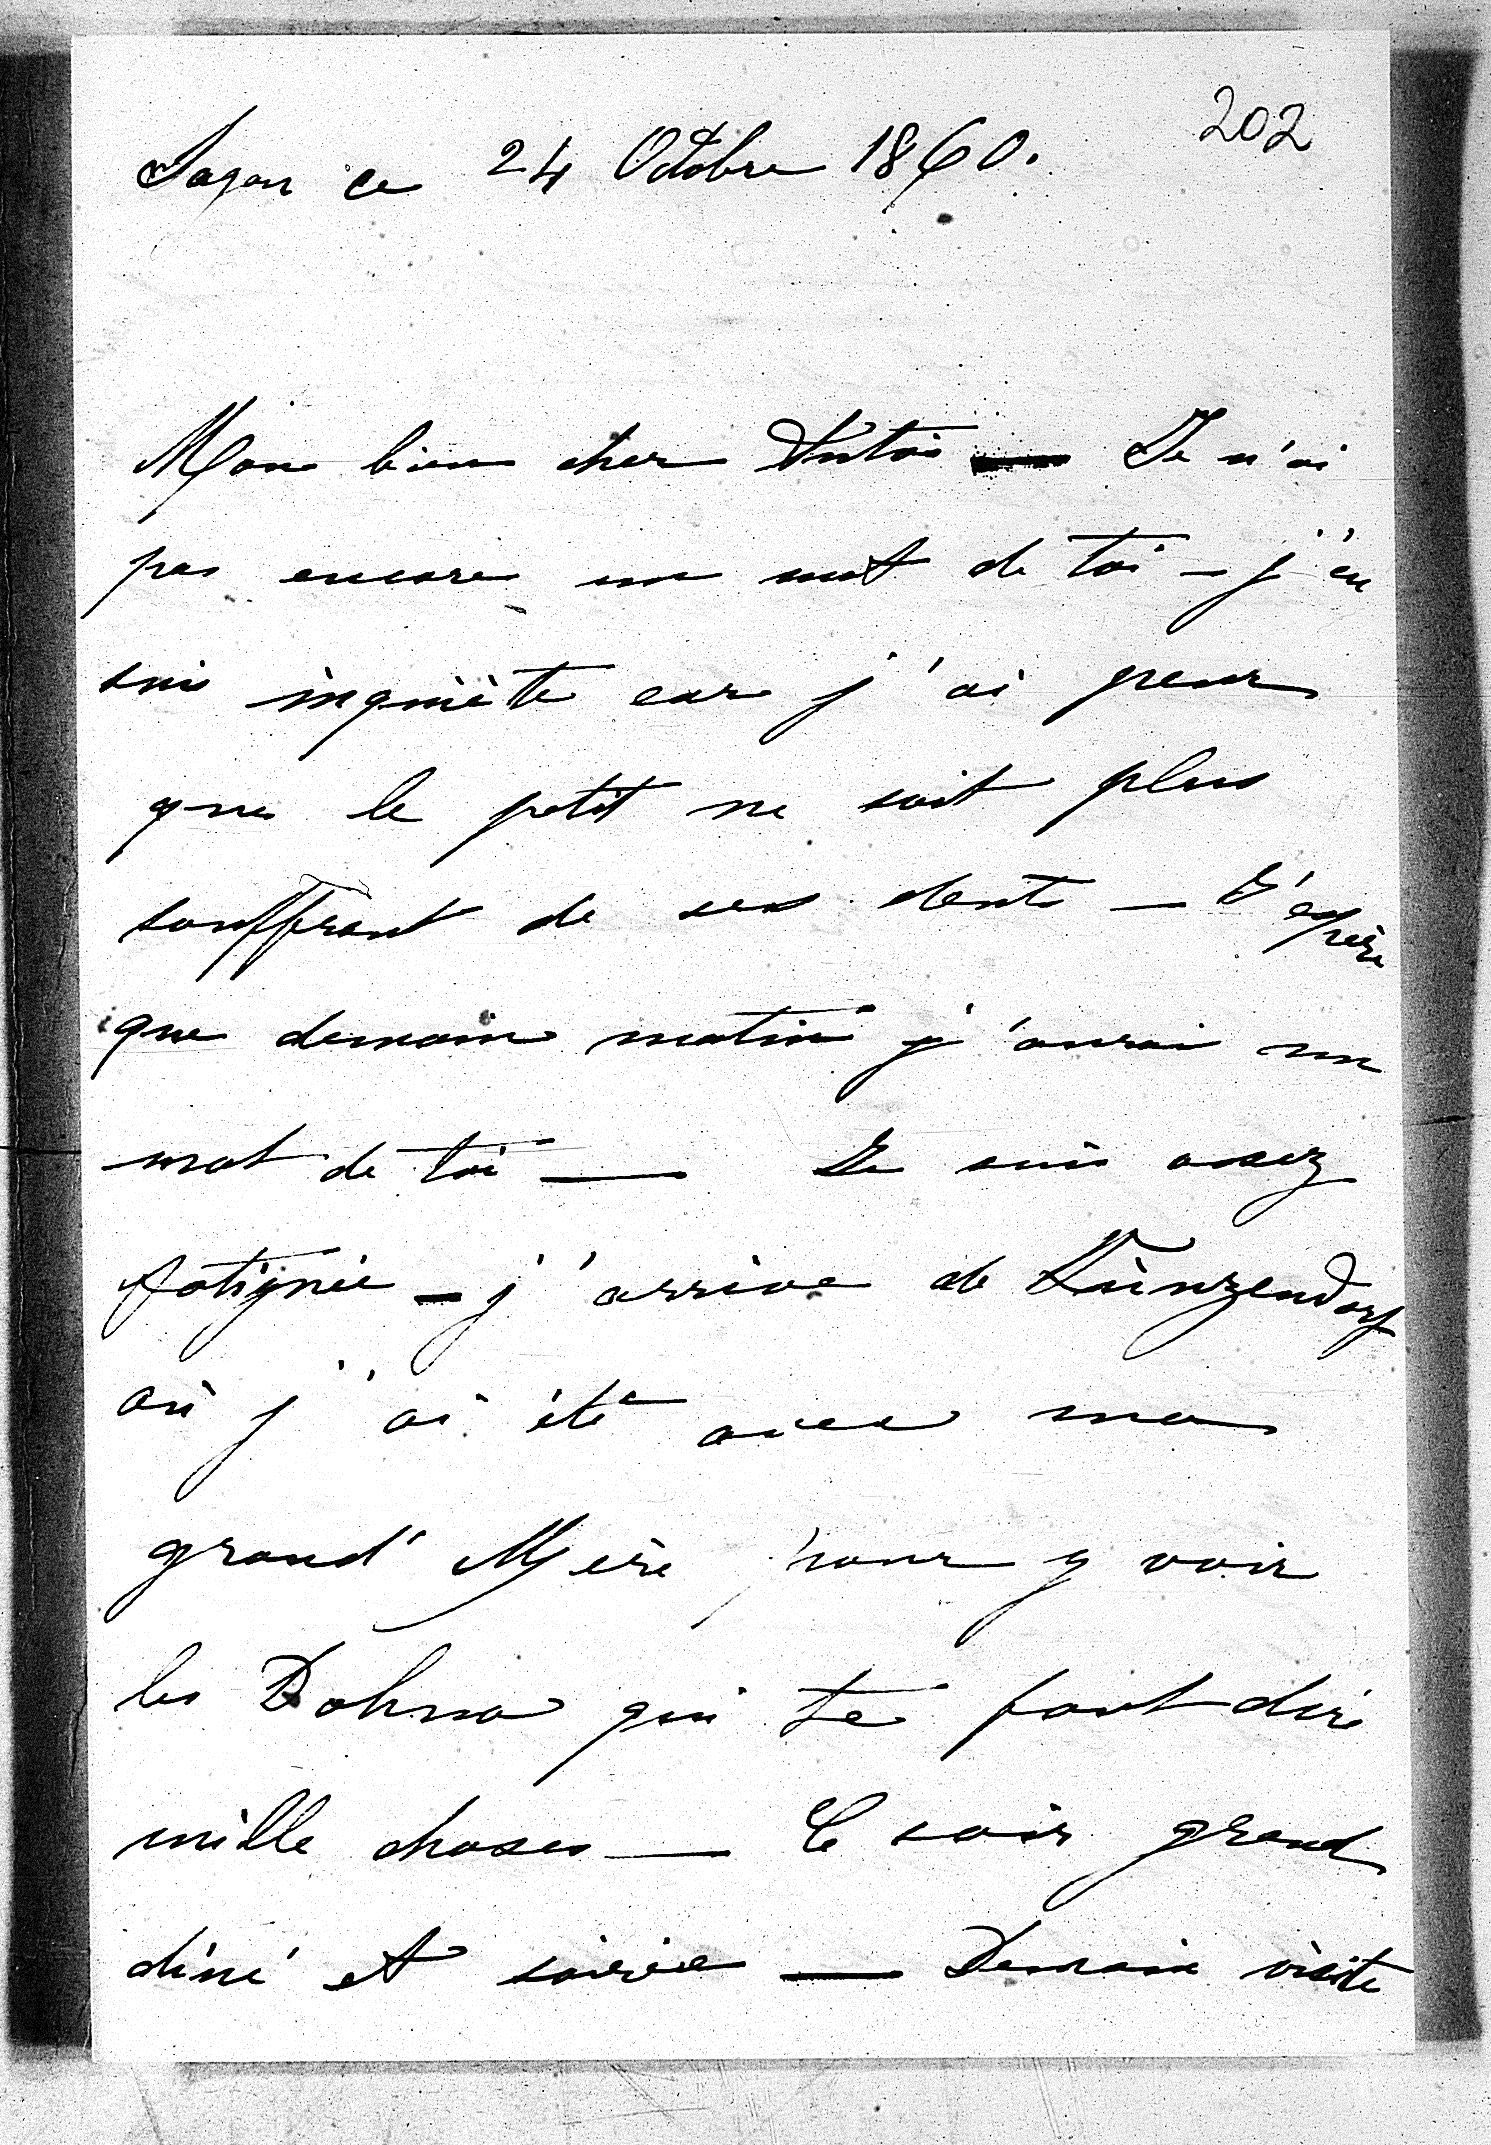 202
Sagan ce 24 Octobre 1860.
Mon bien cher Antoi — Je n'ai
pas encore un mot de toi — j'en
suis inquiète car j'ai peur
que le petit ne soit plus
souffrant de ses dents — J'espère
que demain matin j'aurai un
mot de toi — Je suis assez
fatiguée — j'arrive de Künzendorf
où j'ai été avec ma
grand' Mère pour y voir
les Dohna qui te font dire
mille choses — Ce soir grand
dîné et soirée — Demain visite